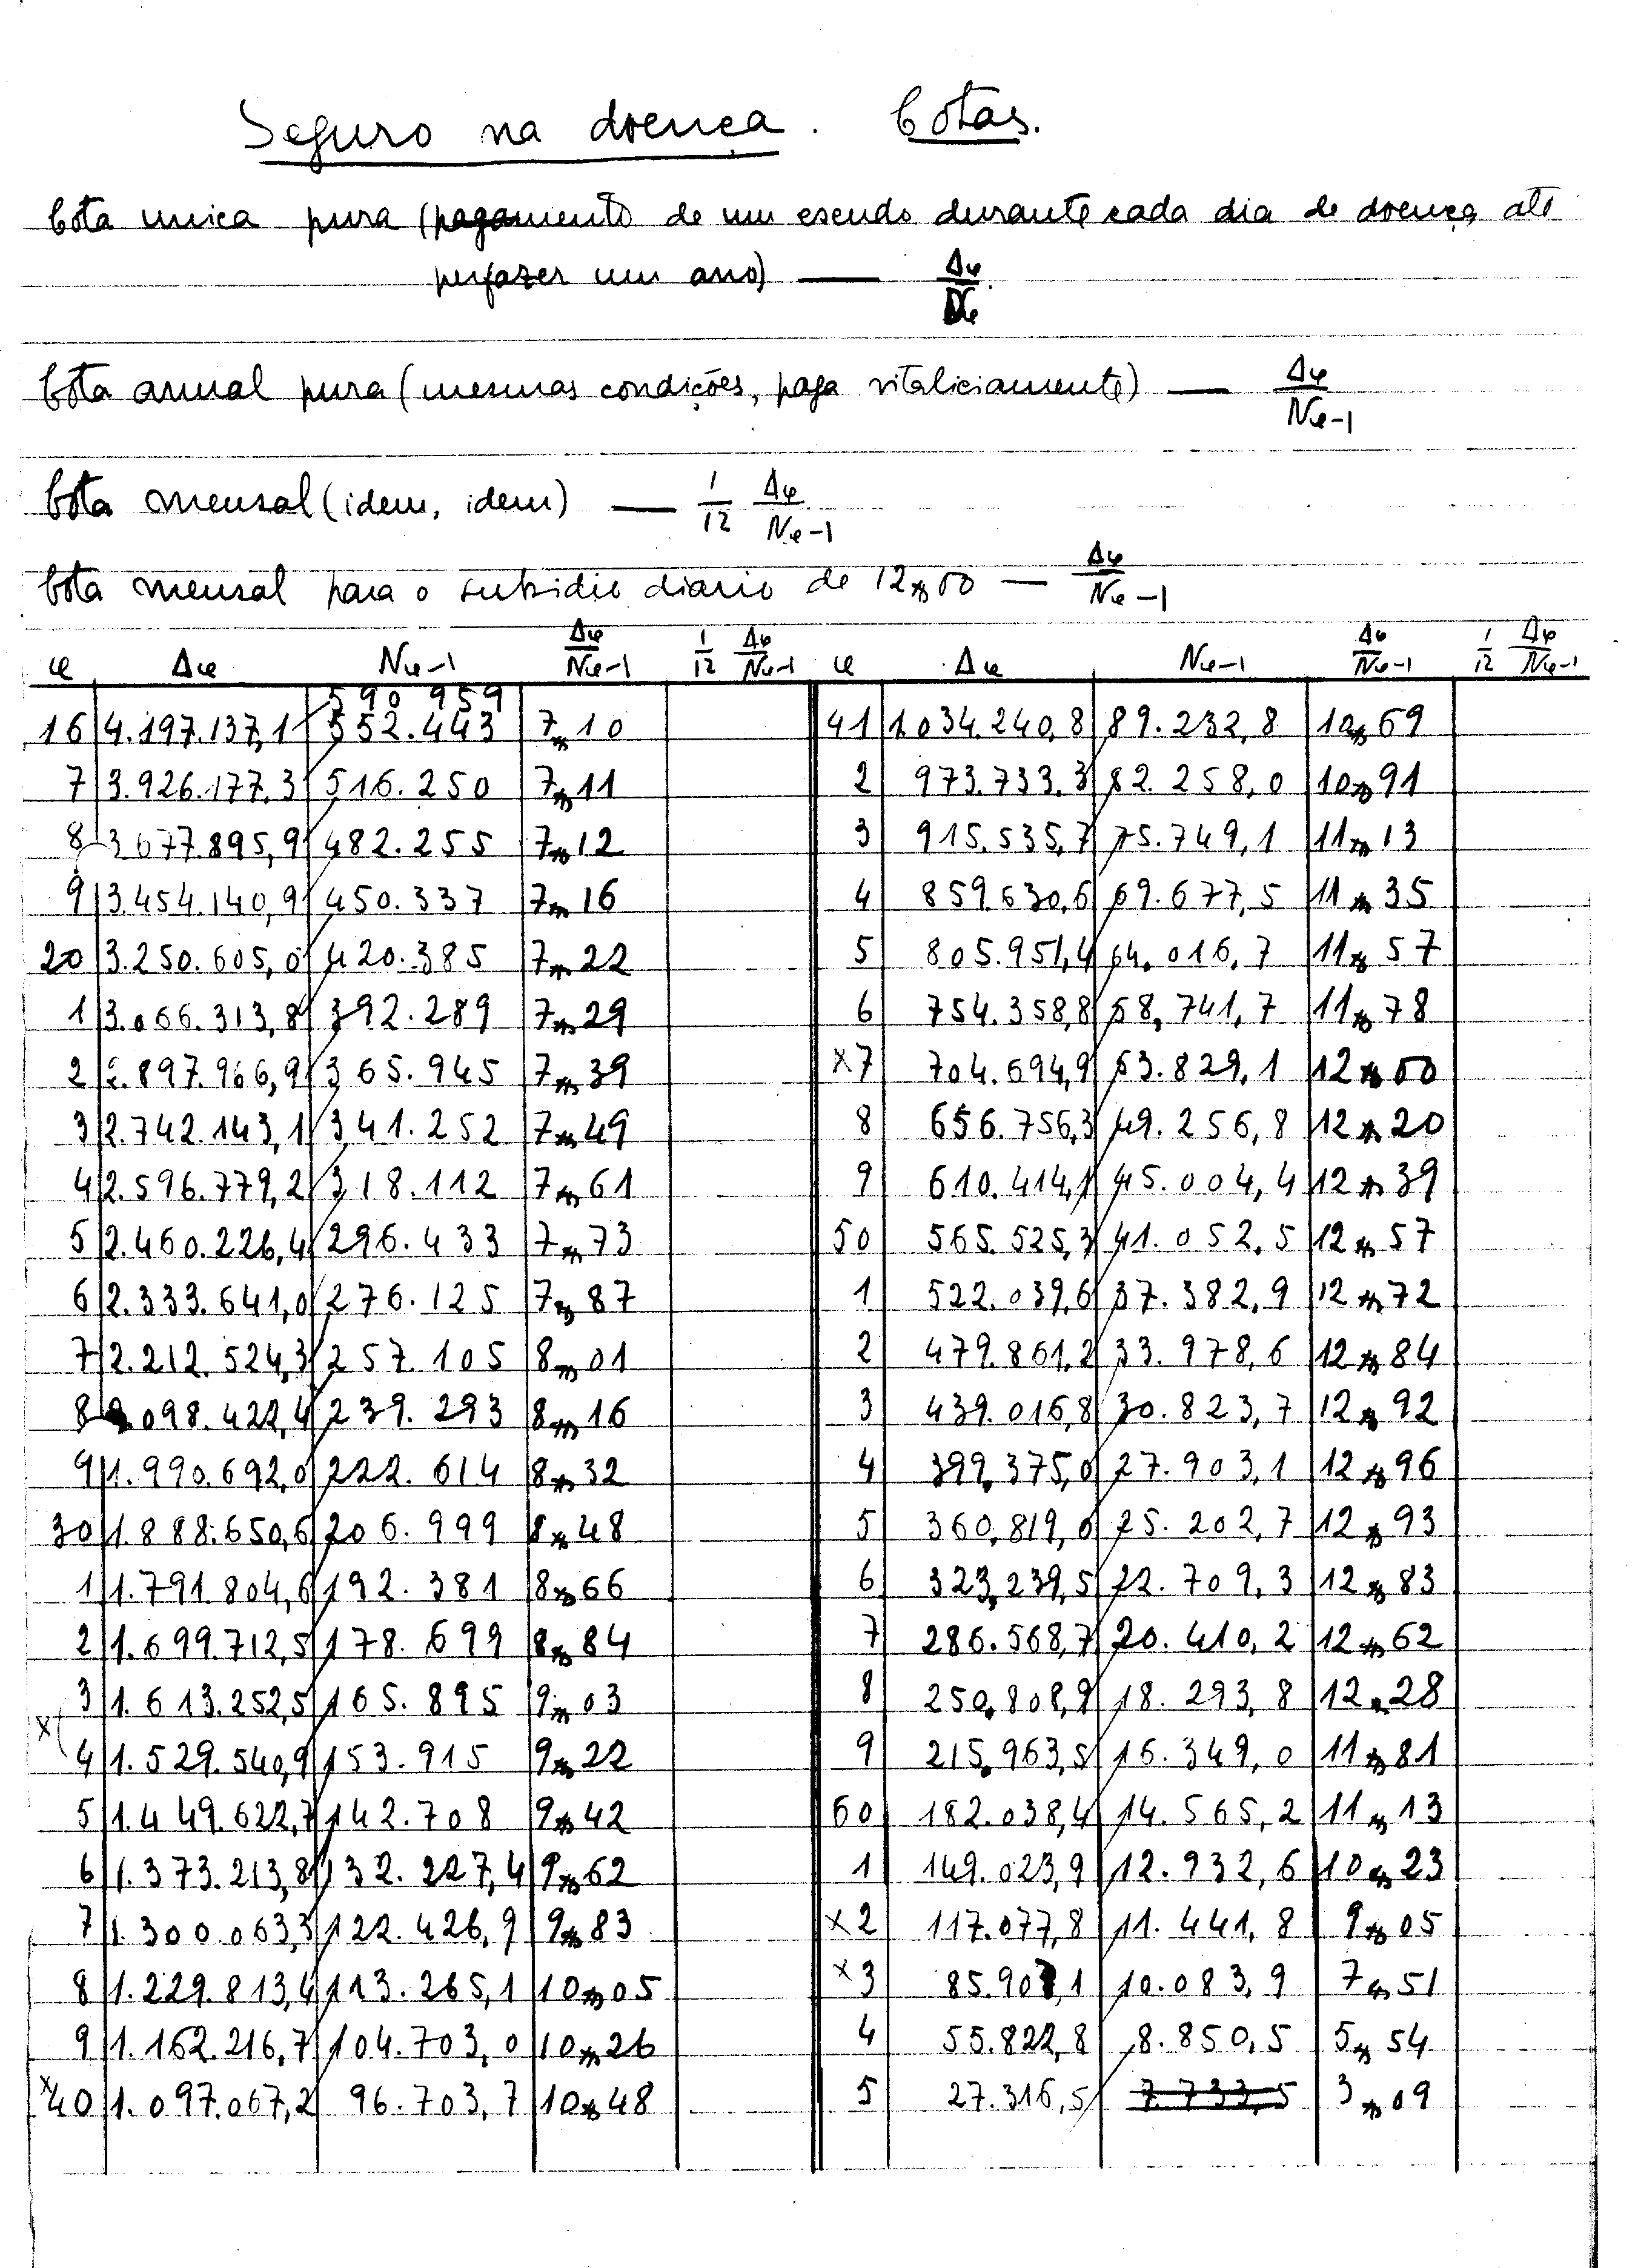 Seguro na doença. Cotas.
Cota unica pura (pagamento de um escudo durante cada dia de doença até
perfazer um ano) — Δφ/Dφ
Cota anual pura (mesmas condições, paga vitaliciamente) — Δφ/Nφ-1
Cota mensal (idem, idem) — 1/12 Δφ/Nφ-1
Cota mensal para o subsidio diario de 12$00 — Δφ/Nφ-1
φ Δφ Nφ-1 Δφ/Nφ-1 1/12 Δφ/Nφ-1 φ Δφ Nφ-1 Δφ/Nφ-1 1/12 Δφ/Nφ-1
590 959
16 4.197.137,1 552.443 7$10 41 1034.240,8 89.232,8 10$69
7 3.926.177,3 516.250 7$11 2 973.733,3 82.258,0 10$91
8 3677.895,9 482.255 7$12 3 915.535,7 75.749,1 11$13
9 3.454.140,9 450.337 7$16 4 859.630,6 69.677,5 11$35
20 3.250.605,0 420.385 7$22 5 805.951,4 64.016,7 11$57
1 3.066.313,8 392.289 7$29 6 754.358,8 58.741,7 11$78
2 2.897.966,9 365.945 7$39 x7 704.694,9 53.829,1 12$00
3 2.742.143,1 341.252 7$49 8 656.756,3 49.256,8 12$20
4 2.596.779,2 318.112 7$61 9 610.414,1 45.004,4 12$39
5 2.460.226,4 296.433 7$73 50 565.525,3 41.052,5 12$57
6 2.333.641,0 276.125 7$87 1 522.039,6 37.382,9 12$72
7 2.212.524,3 257.105 8$01 2 479.861,2 33.978,6 12$84
8 2098.422,4 239.293 8$16 3 439.016,8 30.823,7 12$92
9 1.990.692,0 222.614 8$32 4 399.375,0 27.903,1 12$96
30 1.888.650,6 206.999 8$48 5 360.819,0 25.202,7 12$93
1 1.791.804,6 192.381 8$66 6 323.239,5 22.709,3 12$83
2 1.699.712,5 178.699 8$84 7 286.568,7 20.410,2 12$62
3 1.613.252,5 165.895 9$03 8 250.808,9 18.293,8 12$28
x 4 1.529.540,9 153.915 9$22 9 215.963,5 16.349,0 11$81
5 1.449.622,7 142.708 9$42 60 182.038,4 14.565,2 11$13
6 1.373.213,8 132.227,4 9$62 1 149.023,9 12.932,6 10$23
7 1.300.063,3 122.426,9 9$83 x2 117.077,8 11.441,8 9$05
8 1.229.813,4 113.265,1 10$05 x3 10.083,9 7$51
9 1.162.216,7 104.703,0 10$26 4 55.822,8 8.850,5 5$54
x40 1.097.067,2 96.703,7 10$48 5 27.316,5 7.733,5 3$09